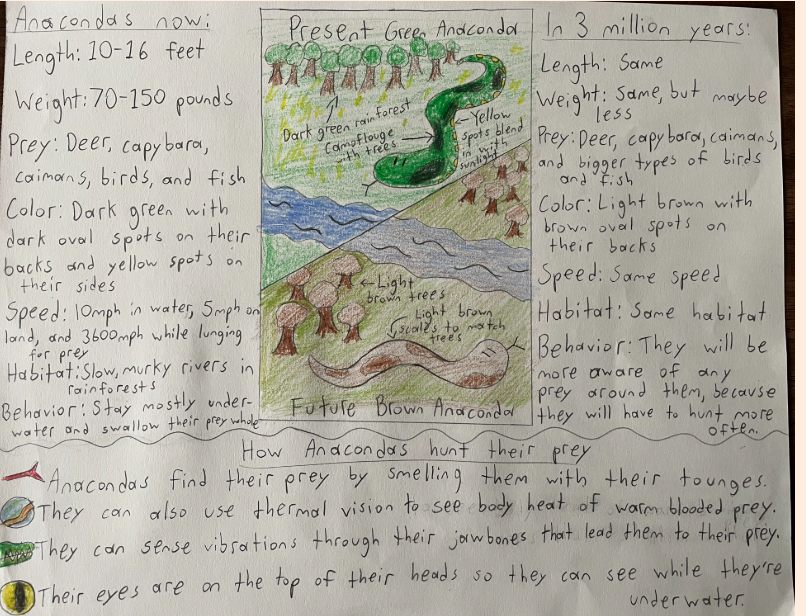 Anacondas now:
Length: 10-16 feet
Weight: 70-150 pounds
Prey: Deer, capybara,
caimans, birds, and fish
Color: Dark green with
dark oval spots on their
backs and yellow spots on
their sides
Speed: 10mph in water, 5mph on
land, and 3600mph while lunging
for prey
Habitat: Slow, murky rivers in
rainforests
Behavior: Stay mostly under-
water and swallow their prey whole
Present Green Anaconda
Dark green rainforest
Camoflouge
with trees
Yellow
spots blend
in with
sunlight
Light
brown trees
Light brown
scales to match
trees
Future Brown Anaconda
In 3 million years:
Length: Same
Weight: Same, but maybe
less
Prey: Deer, capybara, caimans,
and bigger types of birds
and fish
Color: Light brown with
brown oval spots on
their backs
Speed: Same speed
Habitat: Same habitat
Behavior: They will be
more aware of any
prey around them, because
they will have to hunt more
often.
How Anacondas hunt their prey
Anacondas find their prey by smelling them with their tounges.
They can also use thermal vision to see body heat of warm blooded prey.
They can sense vibrations through their jawbones that lead them to their prey.
Their eyes are on the top of their heads so they can see while they're
underwater.